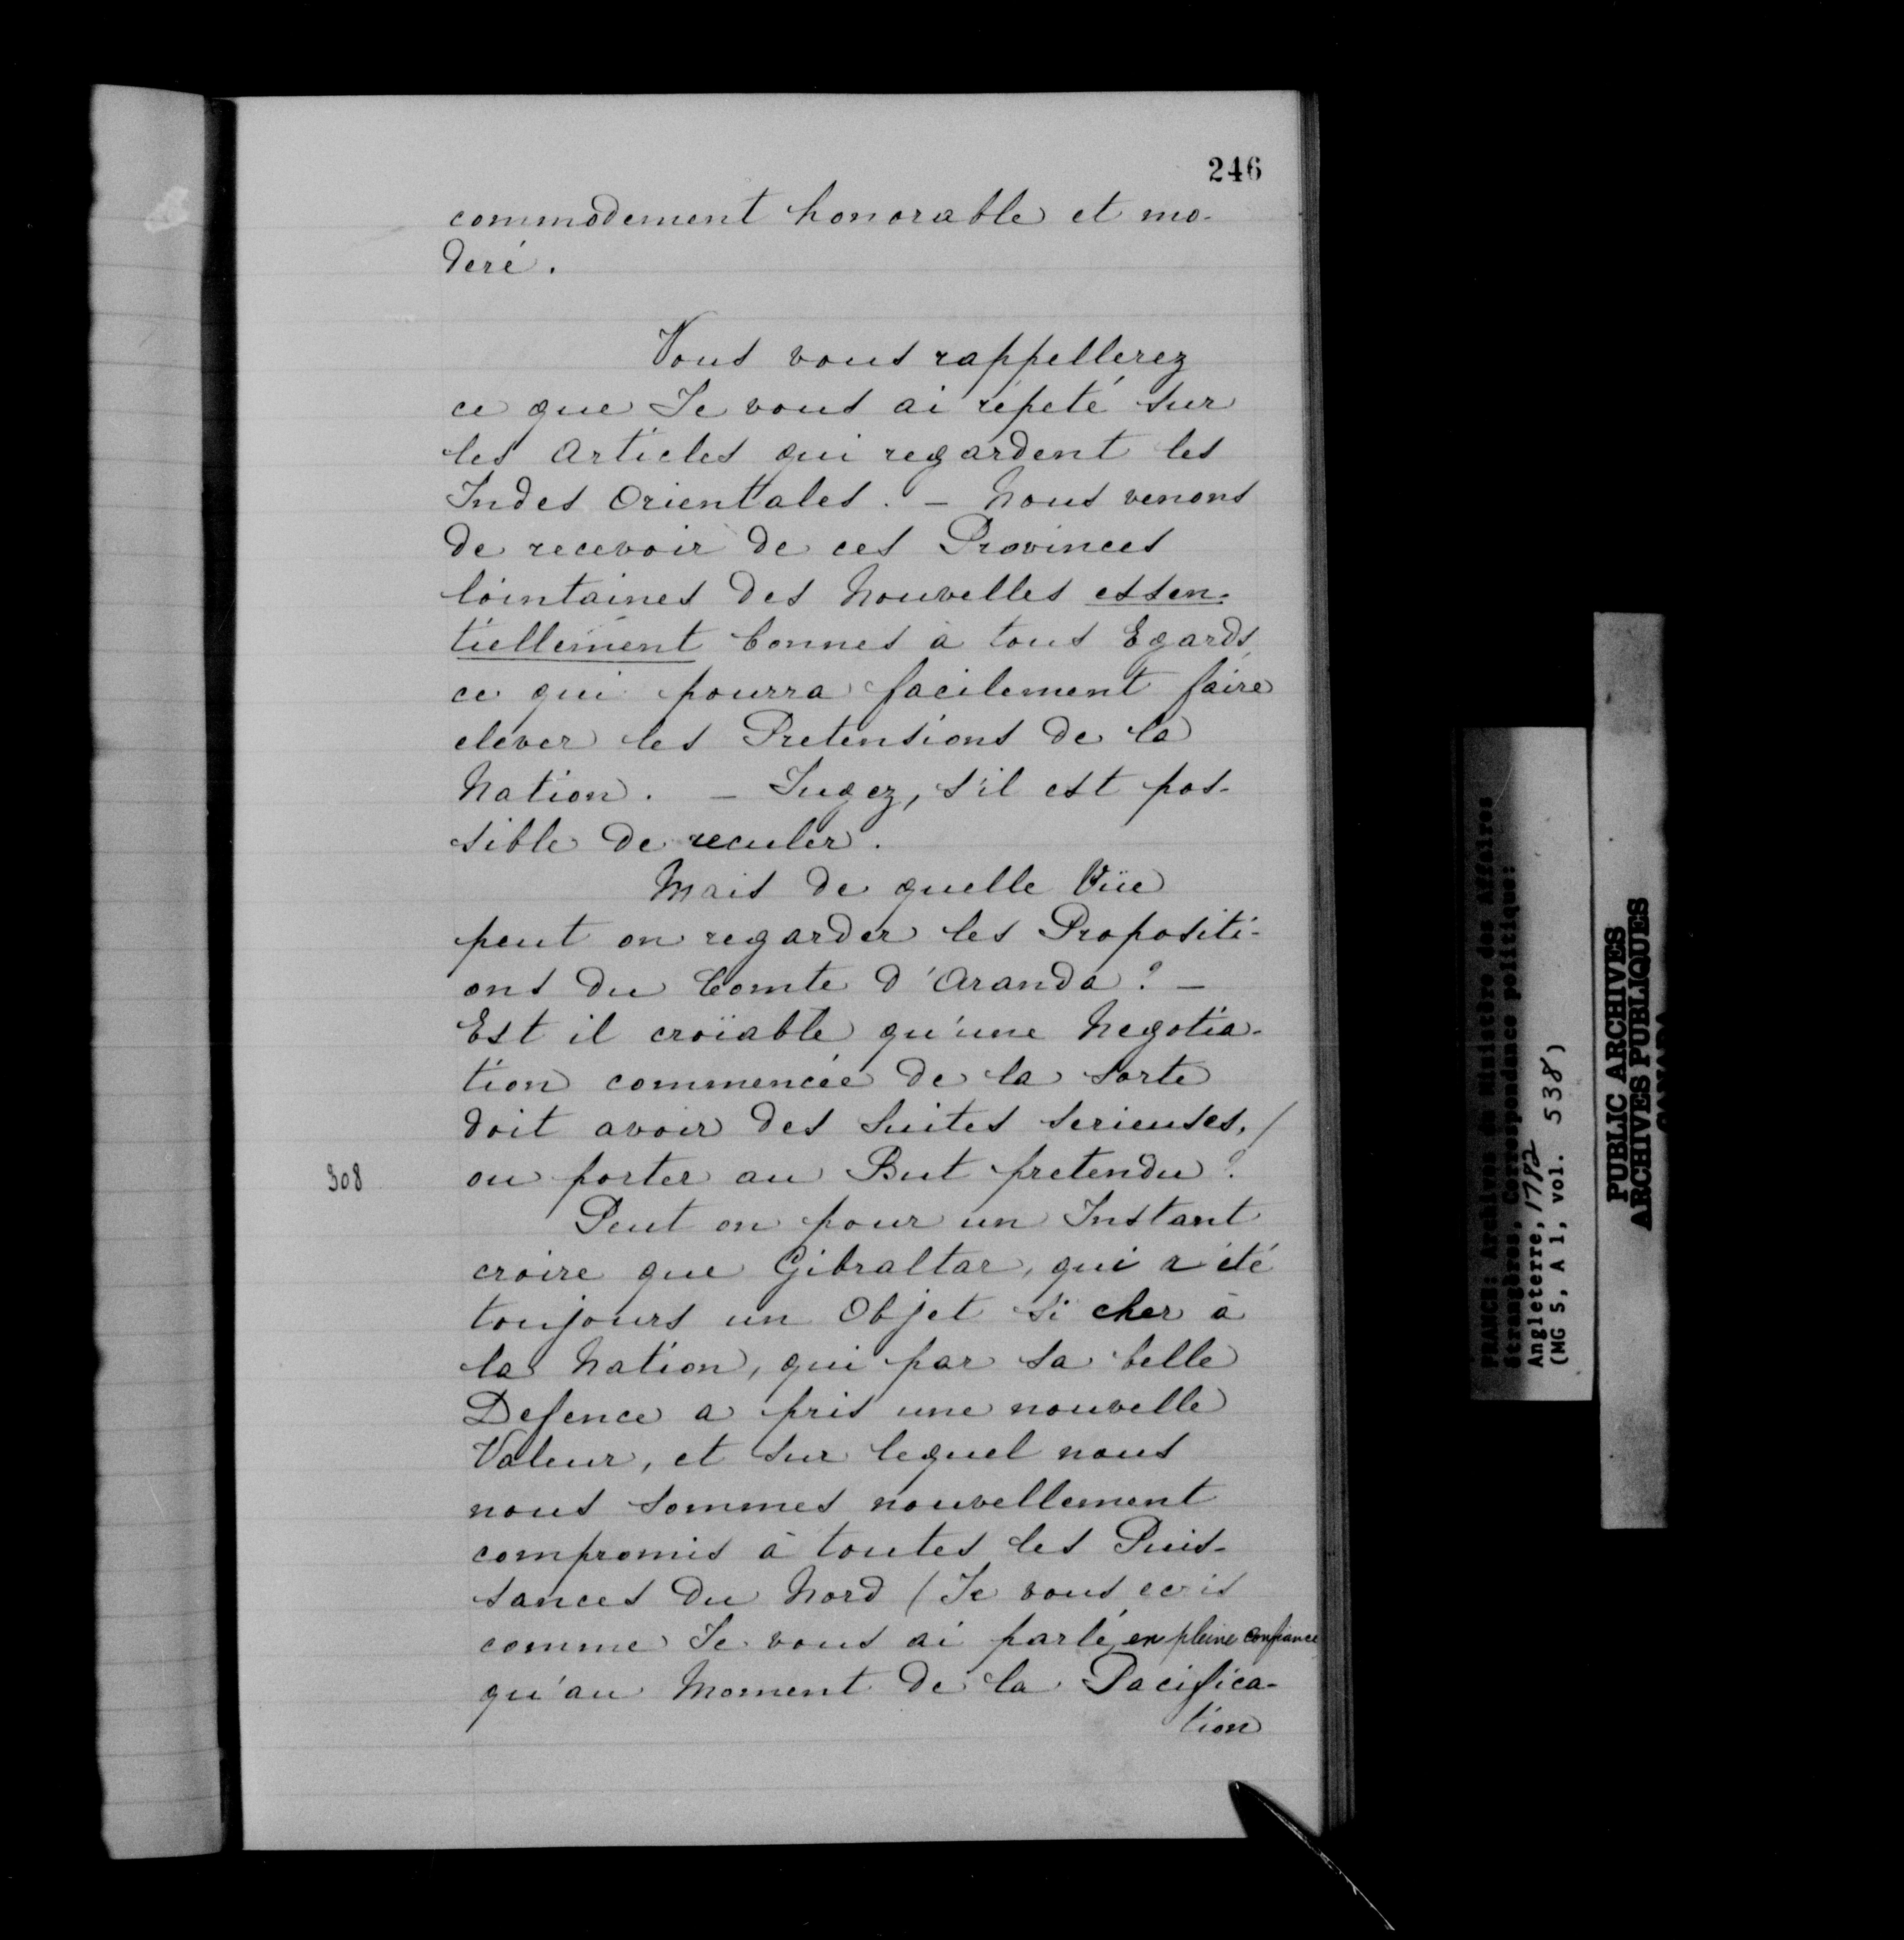 246
commodement honorable et mo-
deré.
Vous vous rappellerez
ce que Je vous ai répeté sur
les Articles qui regardent les
Indes Orientales. — Nous venons
de recevoir de ces Provinces
lointaines des Nouvelles essen-
tiellement bonnes à tous Egards,
ce qui pourra facilement faire
elever les Pretensions de la
Nation. — Jugez, s'il est pos-
sible de reculer.
Mais de quelle Vüe
peut on regarder les Propositi-
ons du Comte d'Aranda? —
Est il croïable qu'une Negotia-
tion commencée de la sorte
doit avoir des Suites serieuses, /
308
ou porter au But pretendu?
Peut on pour un Instant
croire que Gibraltar, qui a été
toujours un Objet si cher à
la Nation, qui par sa belle
Defence a pris une nouvelle
Valeur, et sur lequel nous
nous sommes nouvellement
compromis à toutes les Puis-
sances du Nord (Je vous ecris
comme Je vous ai parlé, en pleine confiance
qu'au Moment de la Pacifica-
tion
FRANCE: Archives du Ministère des Affaires
étrangères, Correspondance politique:
Angleterre, 1782
(MG 5, A 1, vol. 538)
PUBLIC ARCHIVES
ARCHIVES PUBLIQUES
CANADA